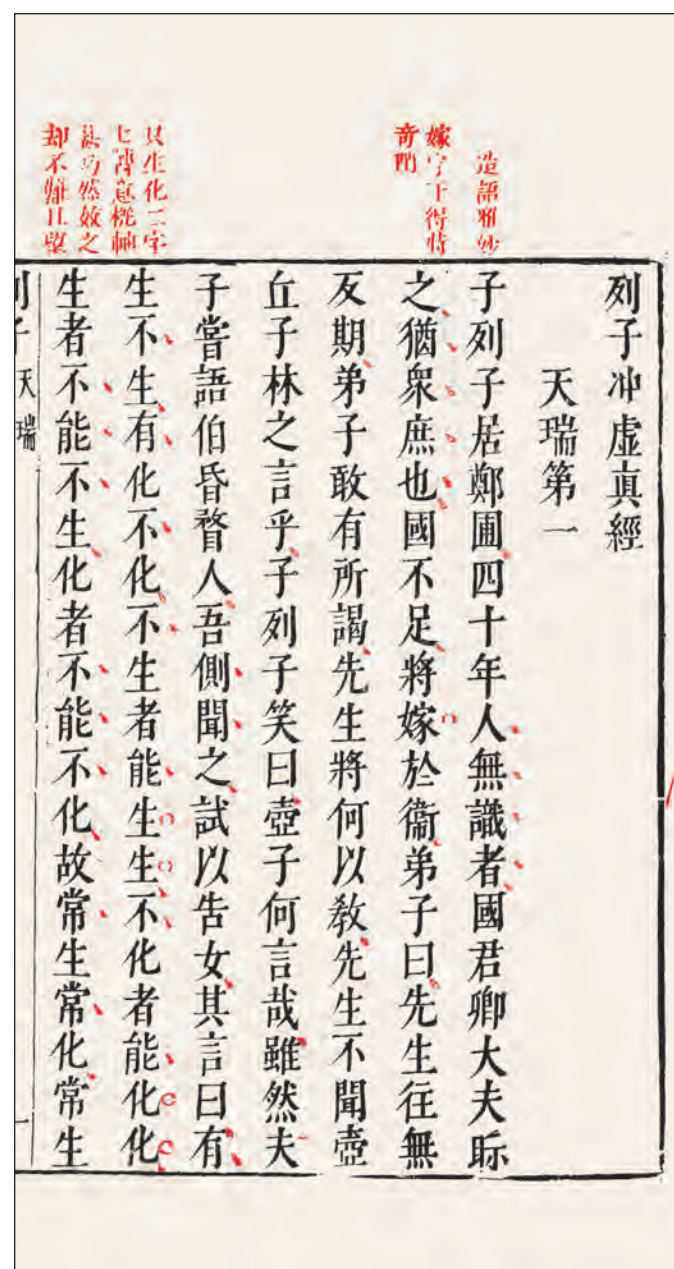 造語雅妙
嫁字下得特
奇
生化二字
然效之
却不
列子冲虛真經
天瑞第一
子列子居鄭圃四十年人無識者國君卿大夫眎
之猶衆庶也國不足將嫁於衞弟子曰先生徃無
反期弟子敢有所謁先生將何以敎先生不聞壺
丘子林之言乎子列子笑曰壺子何言哉雖然夫
子嘗語伯昏瞀人吾側聞之試以告女其言曰有
生不生有化不化不生者能生生不化者能化化
生者不能不生化者不能不化故常生常化常生
列子 天瑞 一